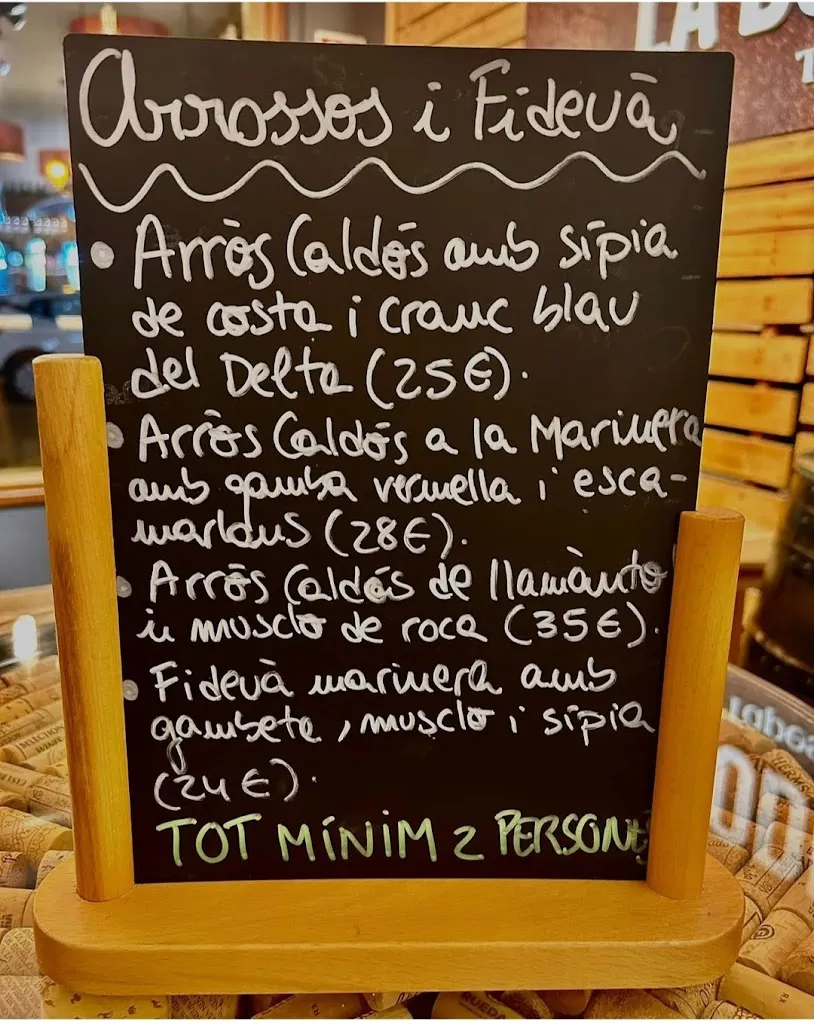 Arrossos i Fidevà
Arròs Caldós amb sípia
de costa i cranc blau
del Delta (25€).
Arròs Caldós a la Marinera
amb gamba vermella i esca-
marlans (28€).
Arròs Caldós de llamànto
i musclo de roca (35€).
Fidevà marinera amb
gambeta, musclo i sípia
(24€).
TOT MÍNIM 2 PERSONES
LA B